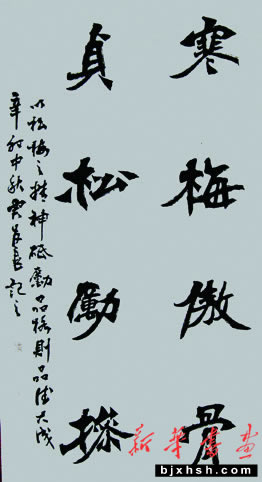 寒梅傲骨
貞松勵操
以松梅之精神砥勵品格則品德大成
辛卯中秋 記之
新華書畫
bjxhsh.com